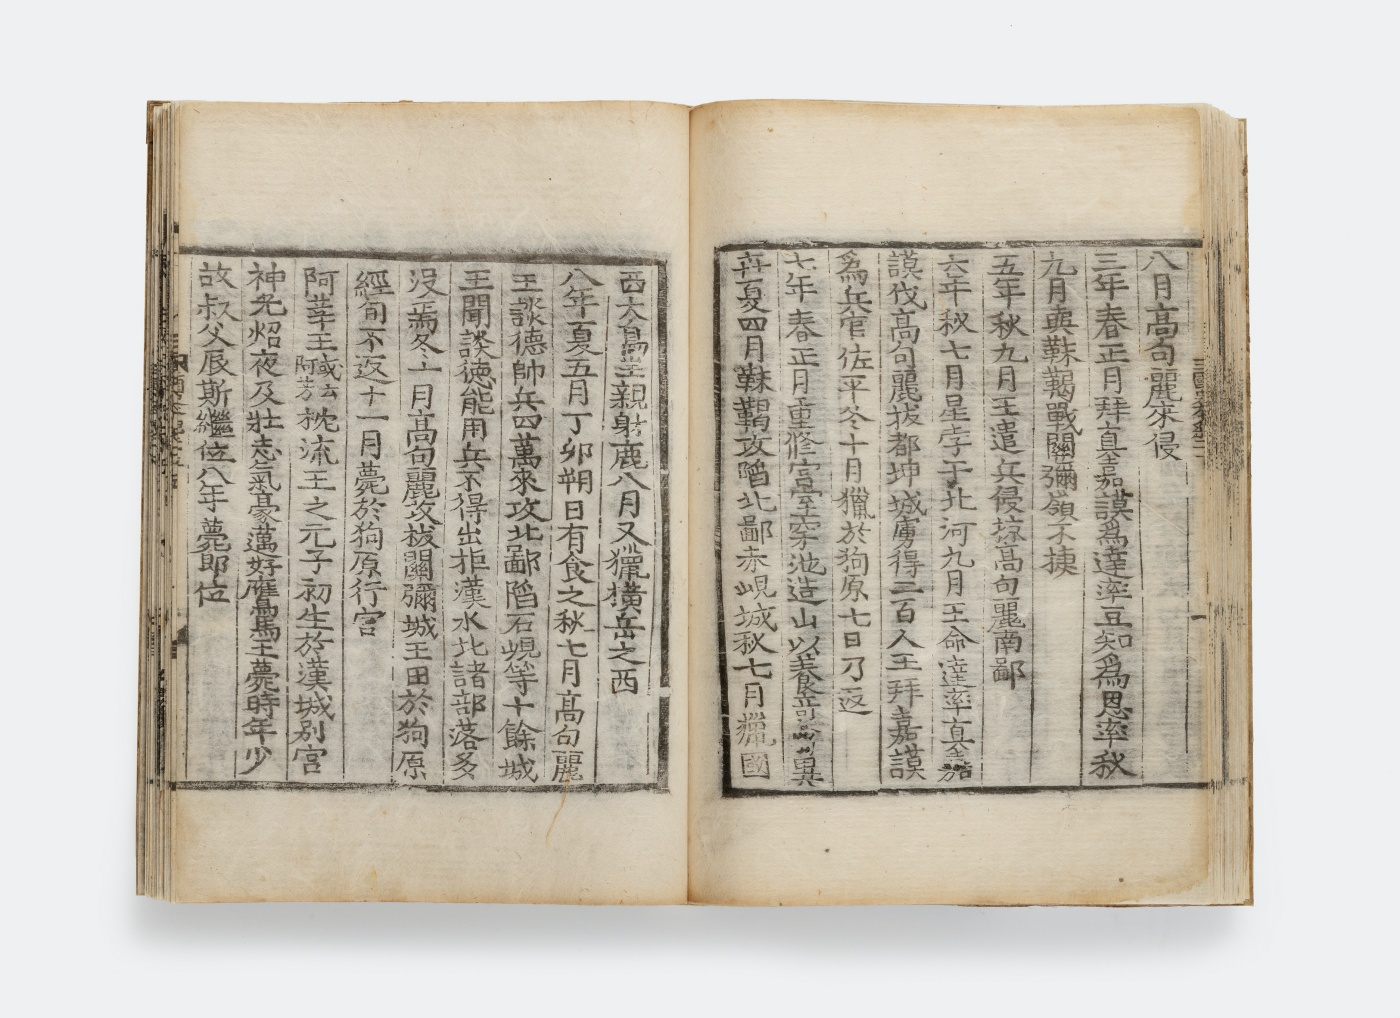 八月高句麗來侵
三年春正月拜真嘉謨爲達率豆知爲恩率秋
九月與靺鞨戰關彌嶺不捷
五年秋九月王遣兵侵掠高句麗南鄙
六年秋七月星孛于北河九月王命達率真嘉
謨伐高句麗拔都坤城虜得二百人王拜嘉謨
爲兵官佐平冬十月獵於狗原七日乃返
七年春正月重修宮室穿池造山以養奇禽異
卉夏四月靺鞨攻陷北鄙赤峴城秋七月獵國
西大島王親射鹿八月又獵橫岳之西
八年夏五月丁卯朔日有食之秋七月高句麗
王談德帥兵四萬來攻北鄙陷石峴等十餘城
王聞談德能用兵不得出拒漢水北諸部落多
没焉冬十月高句麗攻拔關彌城王田於狗原
經旬不返十一月薨於狗原行宮
阿莘王或云阿芳枕流王之元子初生於漢城別宮
神光炤夜及壯志氣豪邁好鷹馬王薨時年少
故叔父辰斯繼位八年薨即位